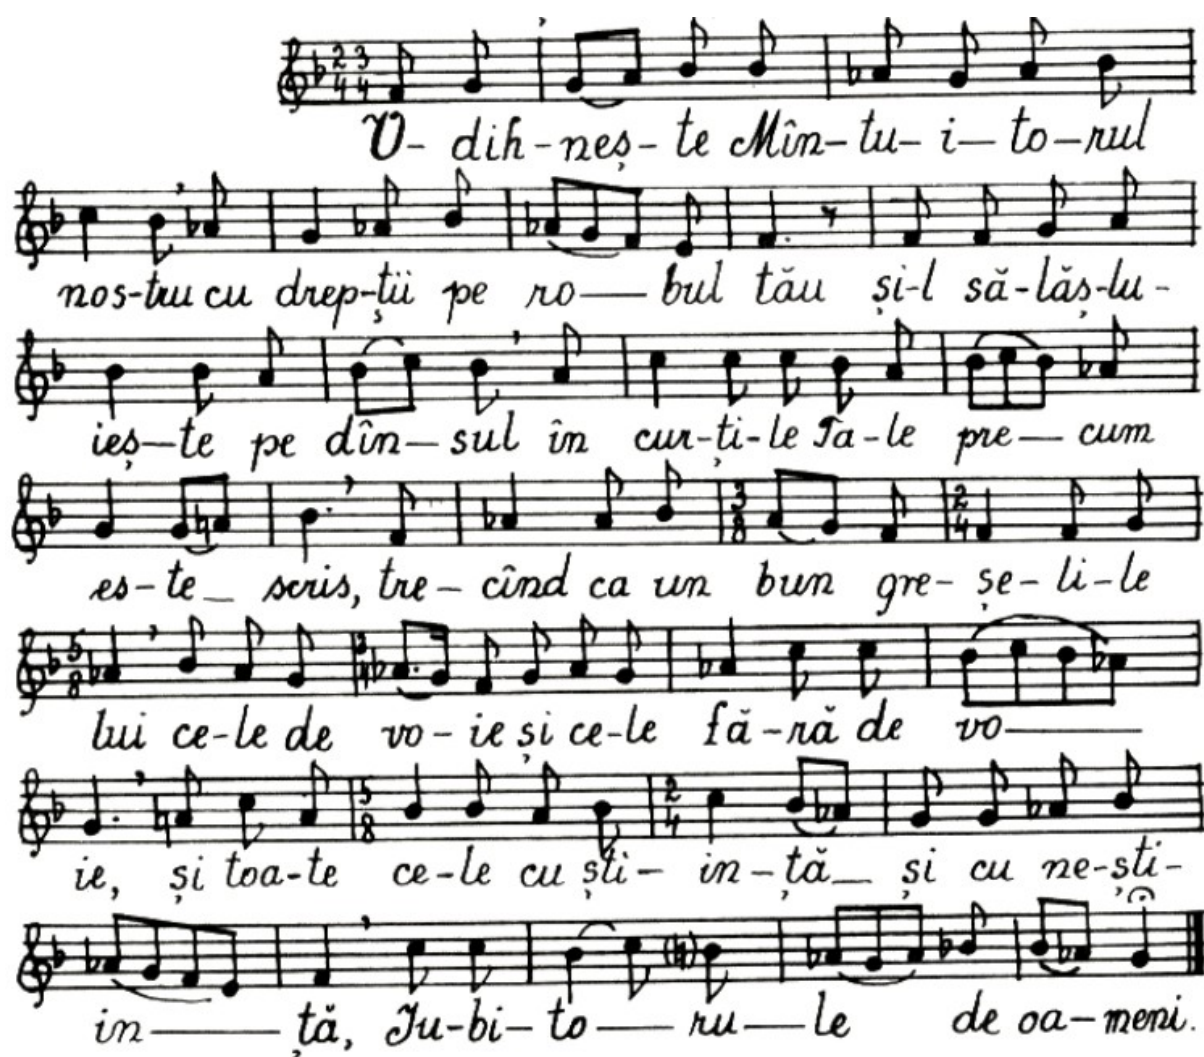 O- dih-neș-te Mîn-tu-i-to-rul
nos-tru cu drep-ții pe ro-bul tău și-l să-lăș-lu-
ieș-te pe dîn-sul în cur-ți-le Ta-le pre-cum
es-te scris, tre-cînd ca un bun gre-șe-li-le
lui ce-le de vo-ie și ce-le fă-ră de vo-
ie, și toa-te ce-le cu ști-in-ță și cu ne-ști-
in-ță, Iu-bi-to-ru-le de oa-meni.